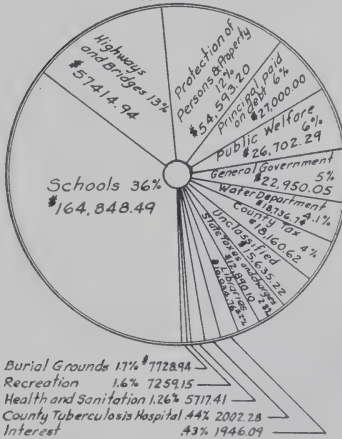 Highways
and Bridges 13%
$57414.94
Protection of
Persons & Property
12%
$54,593.20
Principal paid
on debt 6%
$27,000.00
Public Welfare
6%
$26,702.29
General Government
5%
$22,950.05
Water Department
$18,736.74 4.1%
County Tax
$18,160.62 4%
Unclassified
$15,635.22
State Taxes and Charges
$12,890.10
Libraries
Schools 36%
$164,848.49
Burial Grounds 1.7% $7728.94
Recreation 1.6% 7259.15
Health and Sanitation 1.26% 5717.41
County Tuberculosis Hospital .44% 2002.28
Interest .43% 1946.09